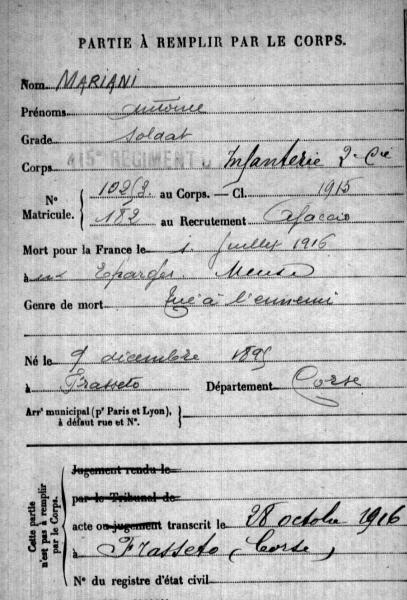 PARTIE À REMPLIR PAR LE CORPS.
Nom MARIANI
Prénoms Antoine
Grade Soldat
Corps 415e RÉGIMENT Infanterie 2e Cie
N° Matricule. { 10253 au Corps. — Cl. 1915
182 au Recrutement Ajaccio
Mort pour la France le 1 Juillet 1916
à aux Eparges Meuse
Genre de mort Tué à l'ennemi
Né le 9 décembre 1895
à Frasseto Département Corse
Arr† municipal (p† Paris et Lyon), à défaut rue et N°.
Cette partie n'est pas à remplir par le Corps.
Jugement rendu le
par le Tribunal de
acte ou jugement transcrit le 28 octobre 1916
à Frasseto (Corse)
N° du registre d'état civil